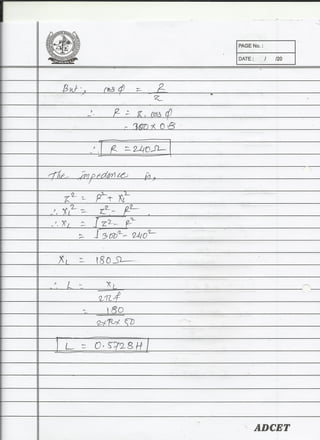 PAGE No. :
DATE : / /20
But, cos φ = R
Z
∴ R = Z. cos φ
= 300 x 0.8
∴ R = 240Ω
The impedance is,
Z² = R² + X_L²
∴ X_L² = Z² - R²
∴ X_L = √Z² - R²
= √300² - 240²
X_L = 180 Ω
∴ L = X_L
2πf
= 180
2xπx 50
L = 0.5728H
ADCET